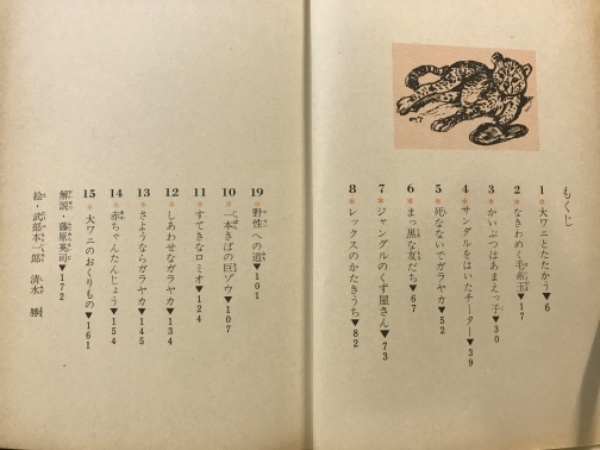 もくじ
1*大ワニとたたかう▼6
2*なきわめく毛玉▼17
3*かいぶつはあまえっ子▼30
4*サンダルをはいたチーター▼39
5*死なないでガラヤカ▼52
6*まっ黒な友だち▼67
7*ジャングルのくず屋さん▼73
8*レックスのかたきうち▼82
19*野性への道▼101
10*一本きばの巨ゾウ▼107
11*すてきなロミオ▼124
12*しあわせなガラヤカ▼134
13*さようならガラヤカ▼145
14*赤ちゃんたんじょう▼154
15*大ワニのおくりもの▼161
解説・藤原英司▼172
絵・武部本一郎 清水勝